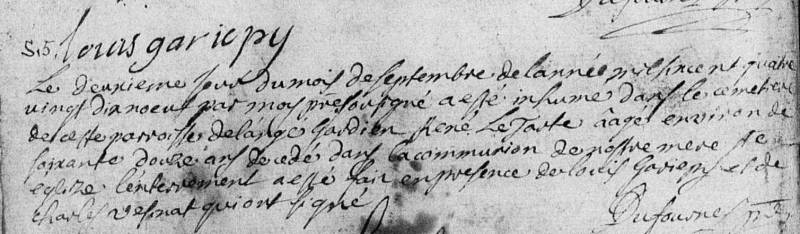 S.5. louis gariepy
Le deuxieme jour du mois de septembre de l'année mil six cent quatre
vingt dix noeuf par moy pretre soussigné a esté inhumé dans le cemetiere
de cette parroisse de l'ange Gardien René Le Tarte âagé environ de
soixante douze ans decedé dans la communion de nostre mere Ste
eglize l'enterrement a esté fait en presence de louis Gariepy et de
Charles vesinat qui ont signé
Dufournel ptre